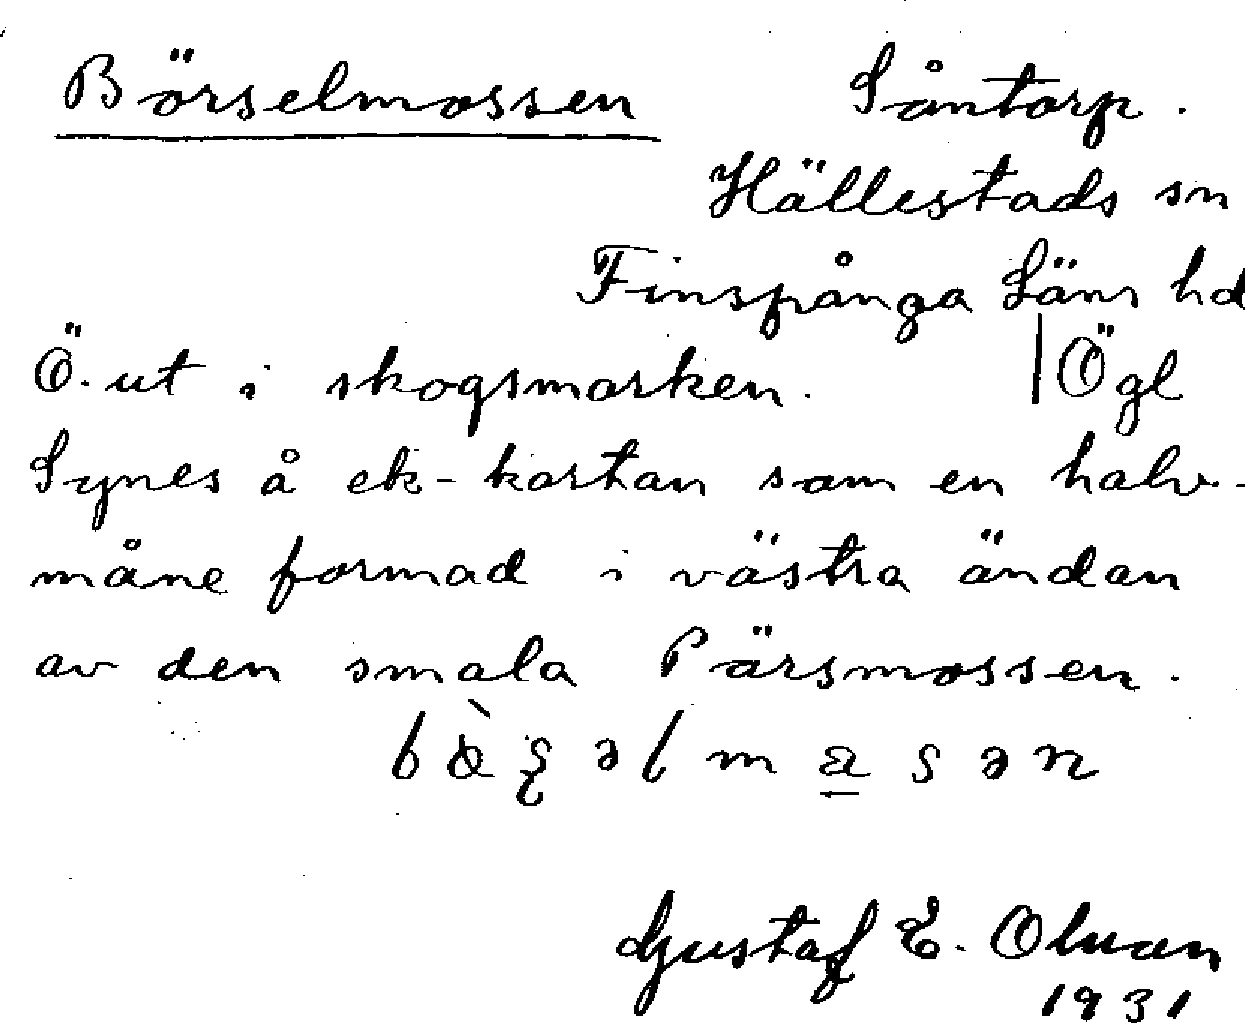 Börselmossen Såntorp.
Hällestads sn
Finspånga Läns hd
Ö. ut i skogsmarken. | Ögl
Synes å ek-kartan som en halv-
måne formad i västra ändan
av den smala Pärsmossen.
Gustaf E. Olman
1931